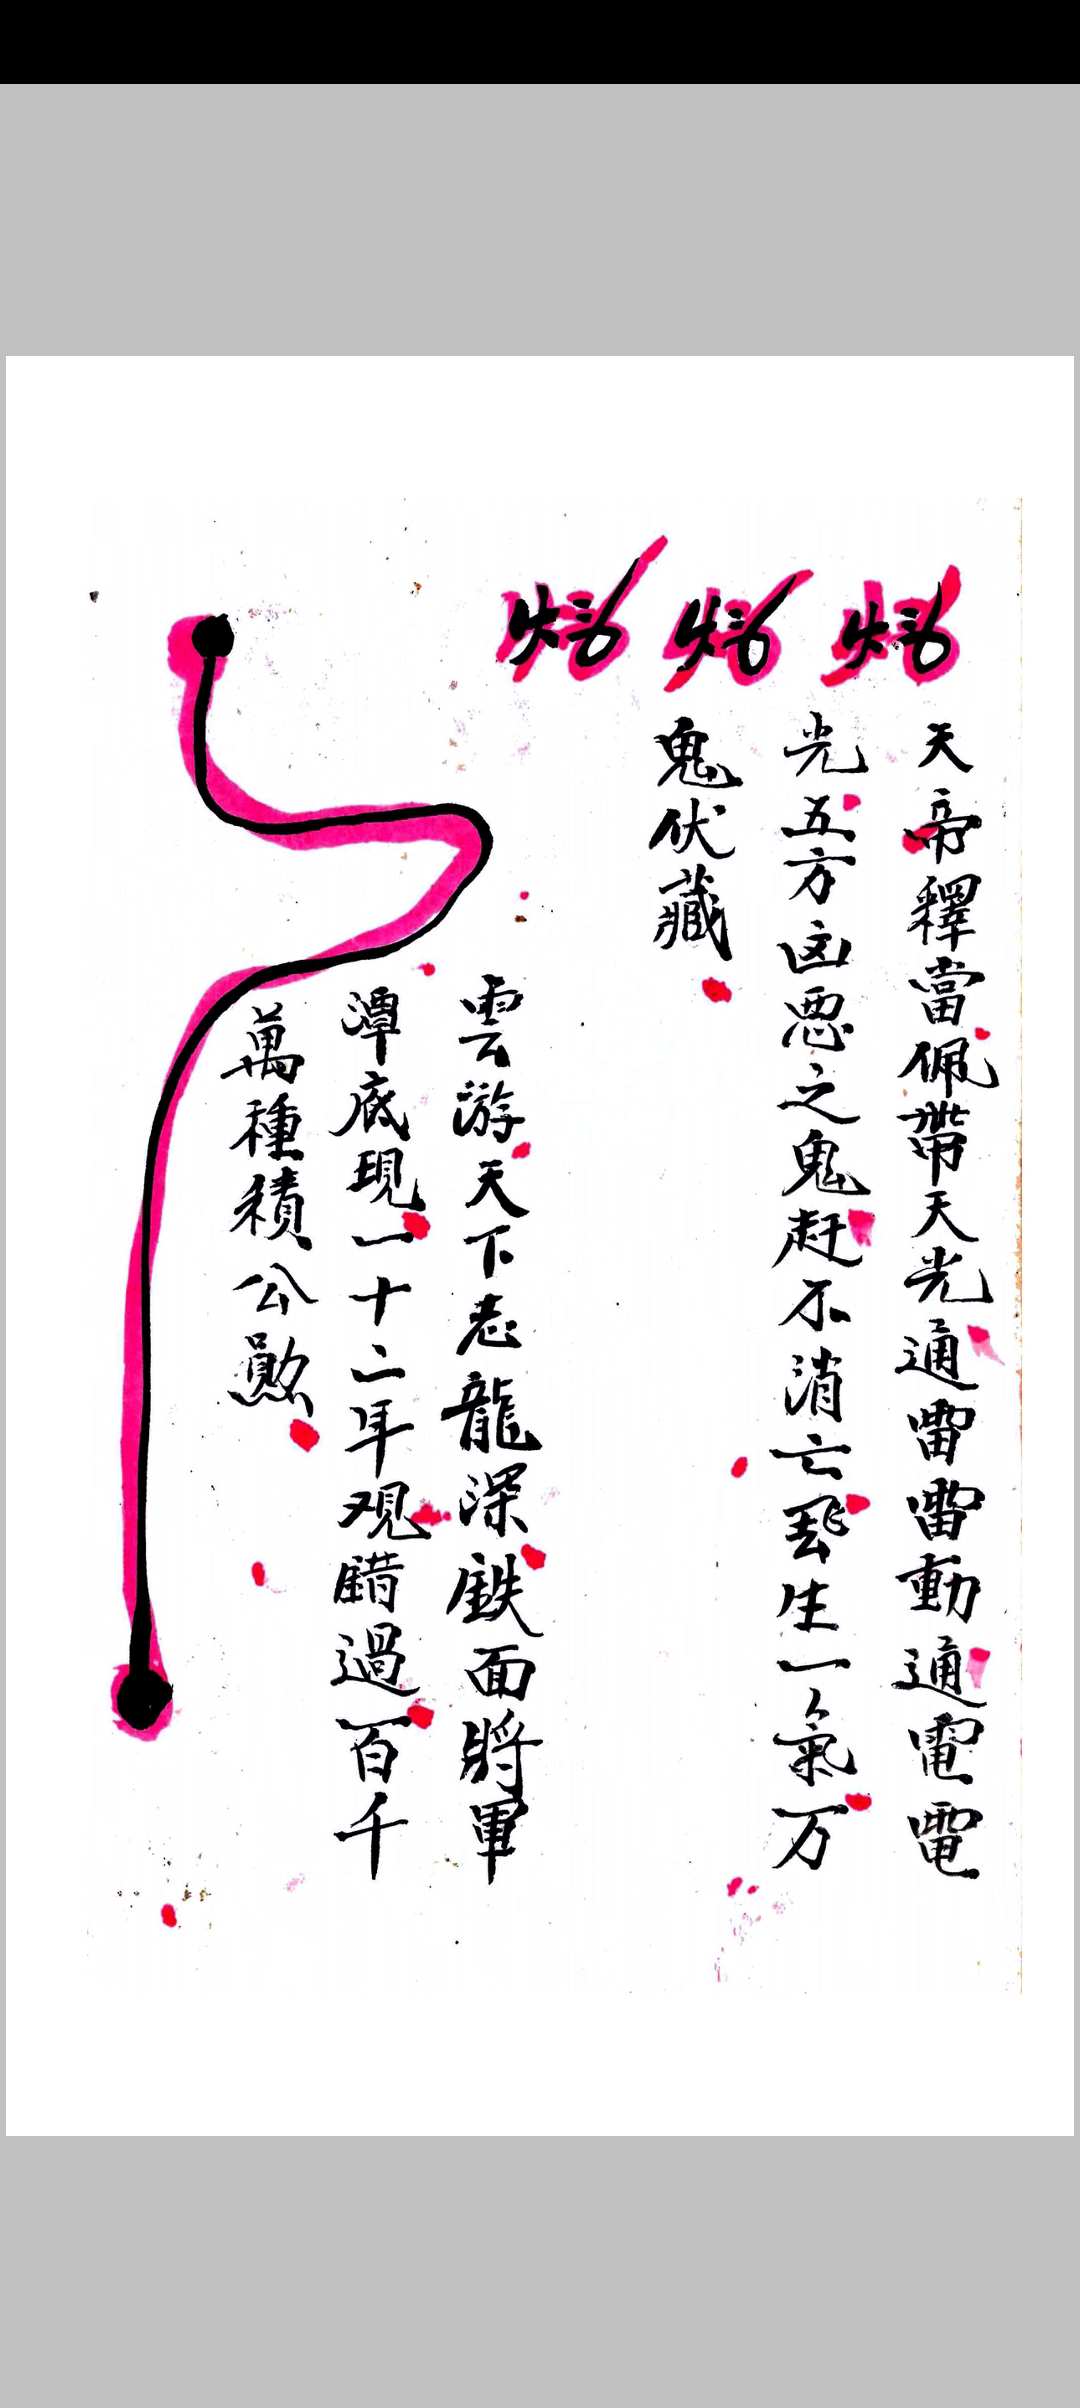 天帝釋當佩帶天光通雷雷動通電電
光五方凶惡之鬼赶不消亡飛生一氣万
鬼伏藏
雲游天下老龍深鉄面將軍
潭底現一十二年观錯過百千
萬種積公勲